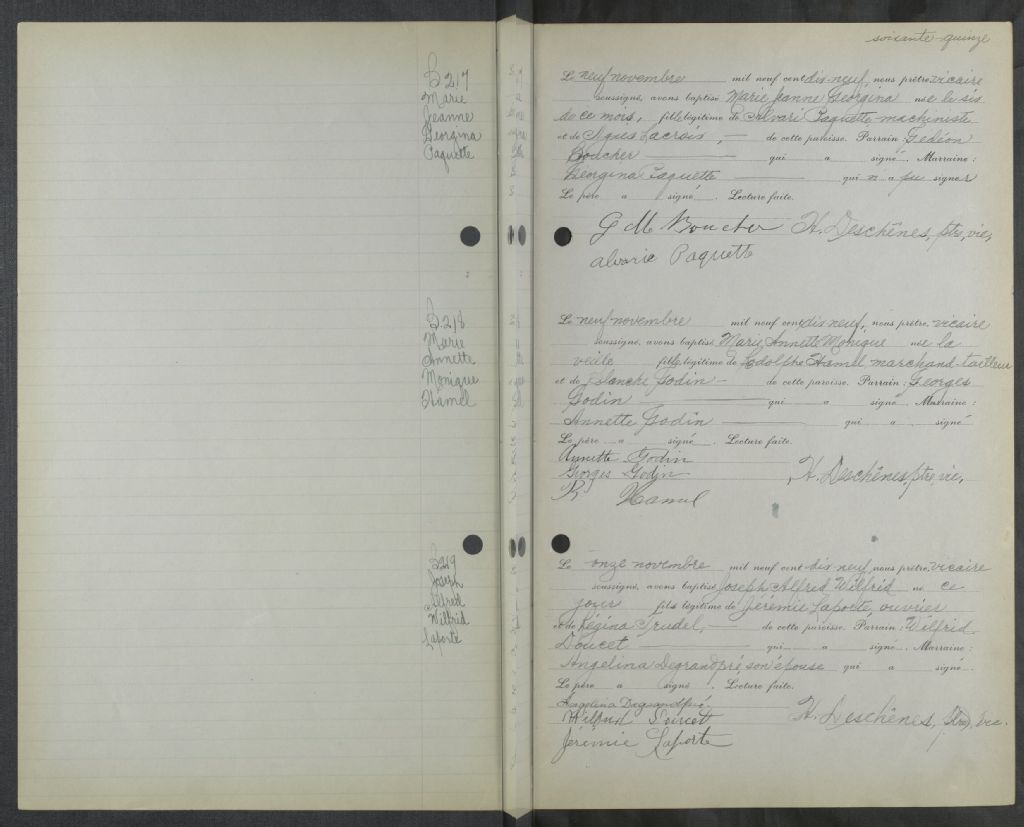 soixante-quinze
B 217
Marie
Jeanne
Georgina
Paquette
Le neuf novembre mil neuf cent dix-neuf, nous prêtre vicaire
soussigné, avons baptisé Marie Jeanne Georgina née le six
de ce mois, fille légitime de Alvari Paquette machiniste
et de Agnus Lacroix, — de cette paroisse. Parrain: Gédéon
Boucher — qui a signé. Marraine:
Georgina Paquette — qui n a pu signer
Le père a signé. Lecture faite.
G M Boucher H. Deschênes, ptre, vic,
alvarie Paquette
B 218
Marie
Annette
Monique
Hamel
Le neuf novembre mil neuf cent dix-neuf, nous prêtre vicaire
soussigné, avons baptisé Marie Annette Monique née la
veille fille légitime de Rodolphe Hamel, marchand-tailleur
et de Blanche Godin — de cette paroisse. Parrain: Georges
Godin — qui a signé. Marraine:
Annette Godin — qui a signé
Le père a signé. Lecture faite.
Annette Godin
Georges Godin H. Deschênes, ptre, vic,
R Hamel
B 219
Joseph
Alfred
Wilfrid
Laporte
Le onze novembre mil neuf cent dix-neuf, nous prêtre vicaire
soussigné, avons baptisé Joseph Alfred Wilfrid né ce
jour fils légitime de Jérémie Laporte, ouvrier
et de Régina Trudel, — de cette paroisse. Parrain: Wilfrid
Doucet — qui a signé. Marraine:
Angelina Degrandpré son épouse qui a signé.
Le père a signé. Lecture faite.
Angelina Degrandpré
Wilfrid Doucett H. Deschênes, ptre, vic.
Jérémie Laporte